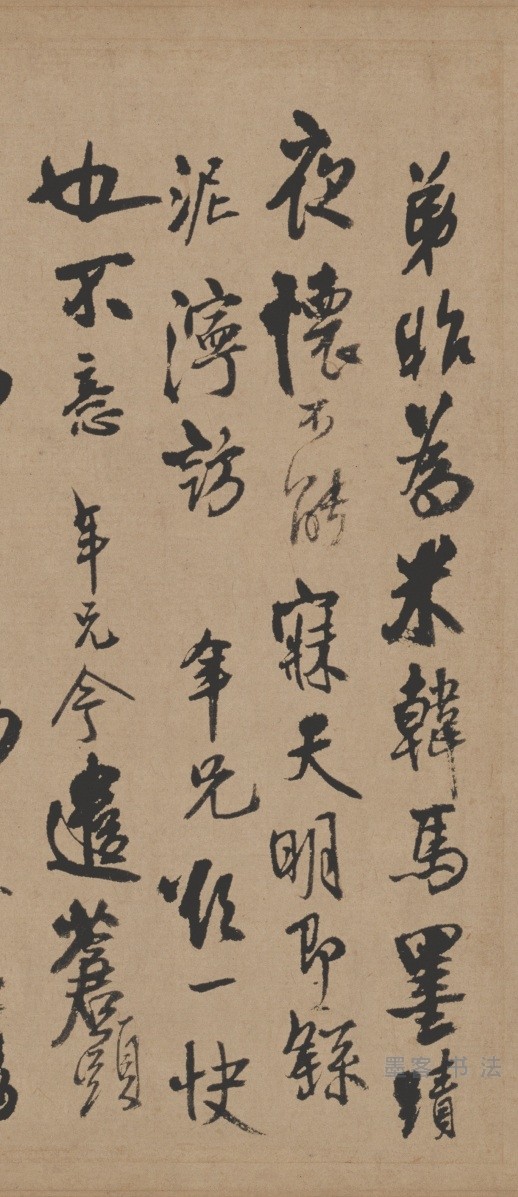 弟昨為米韓馬墨蹟
夜懷不能寐天明即繇
泥濘訪 年兄一快
也不意 年兄今遣蒼頭
墨客书法